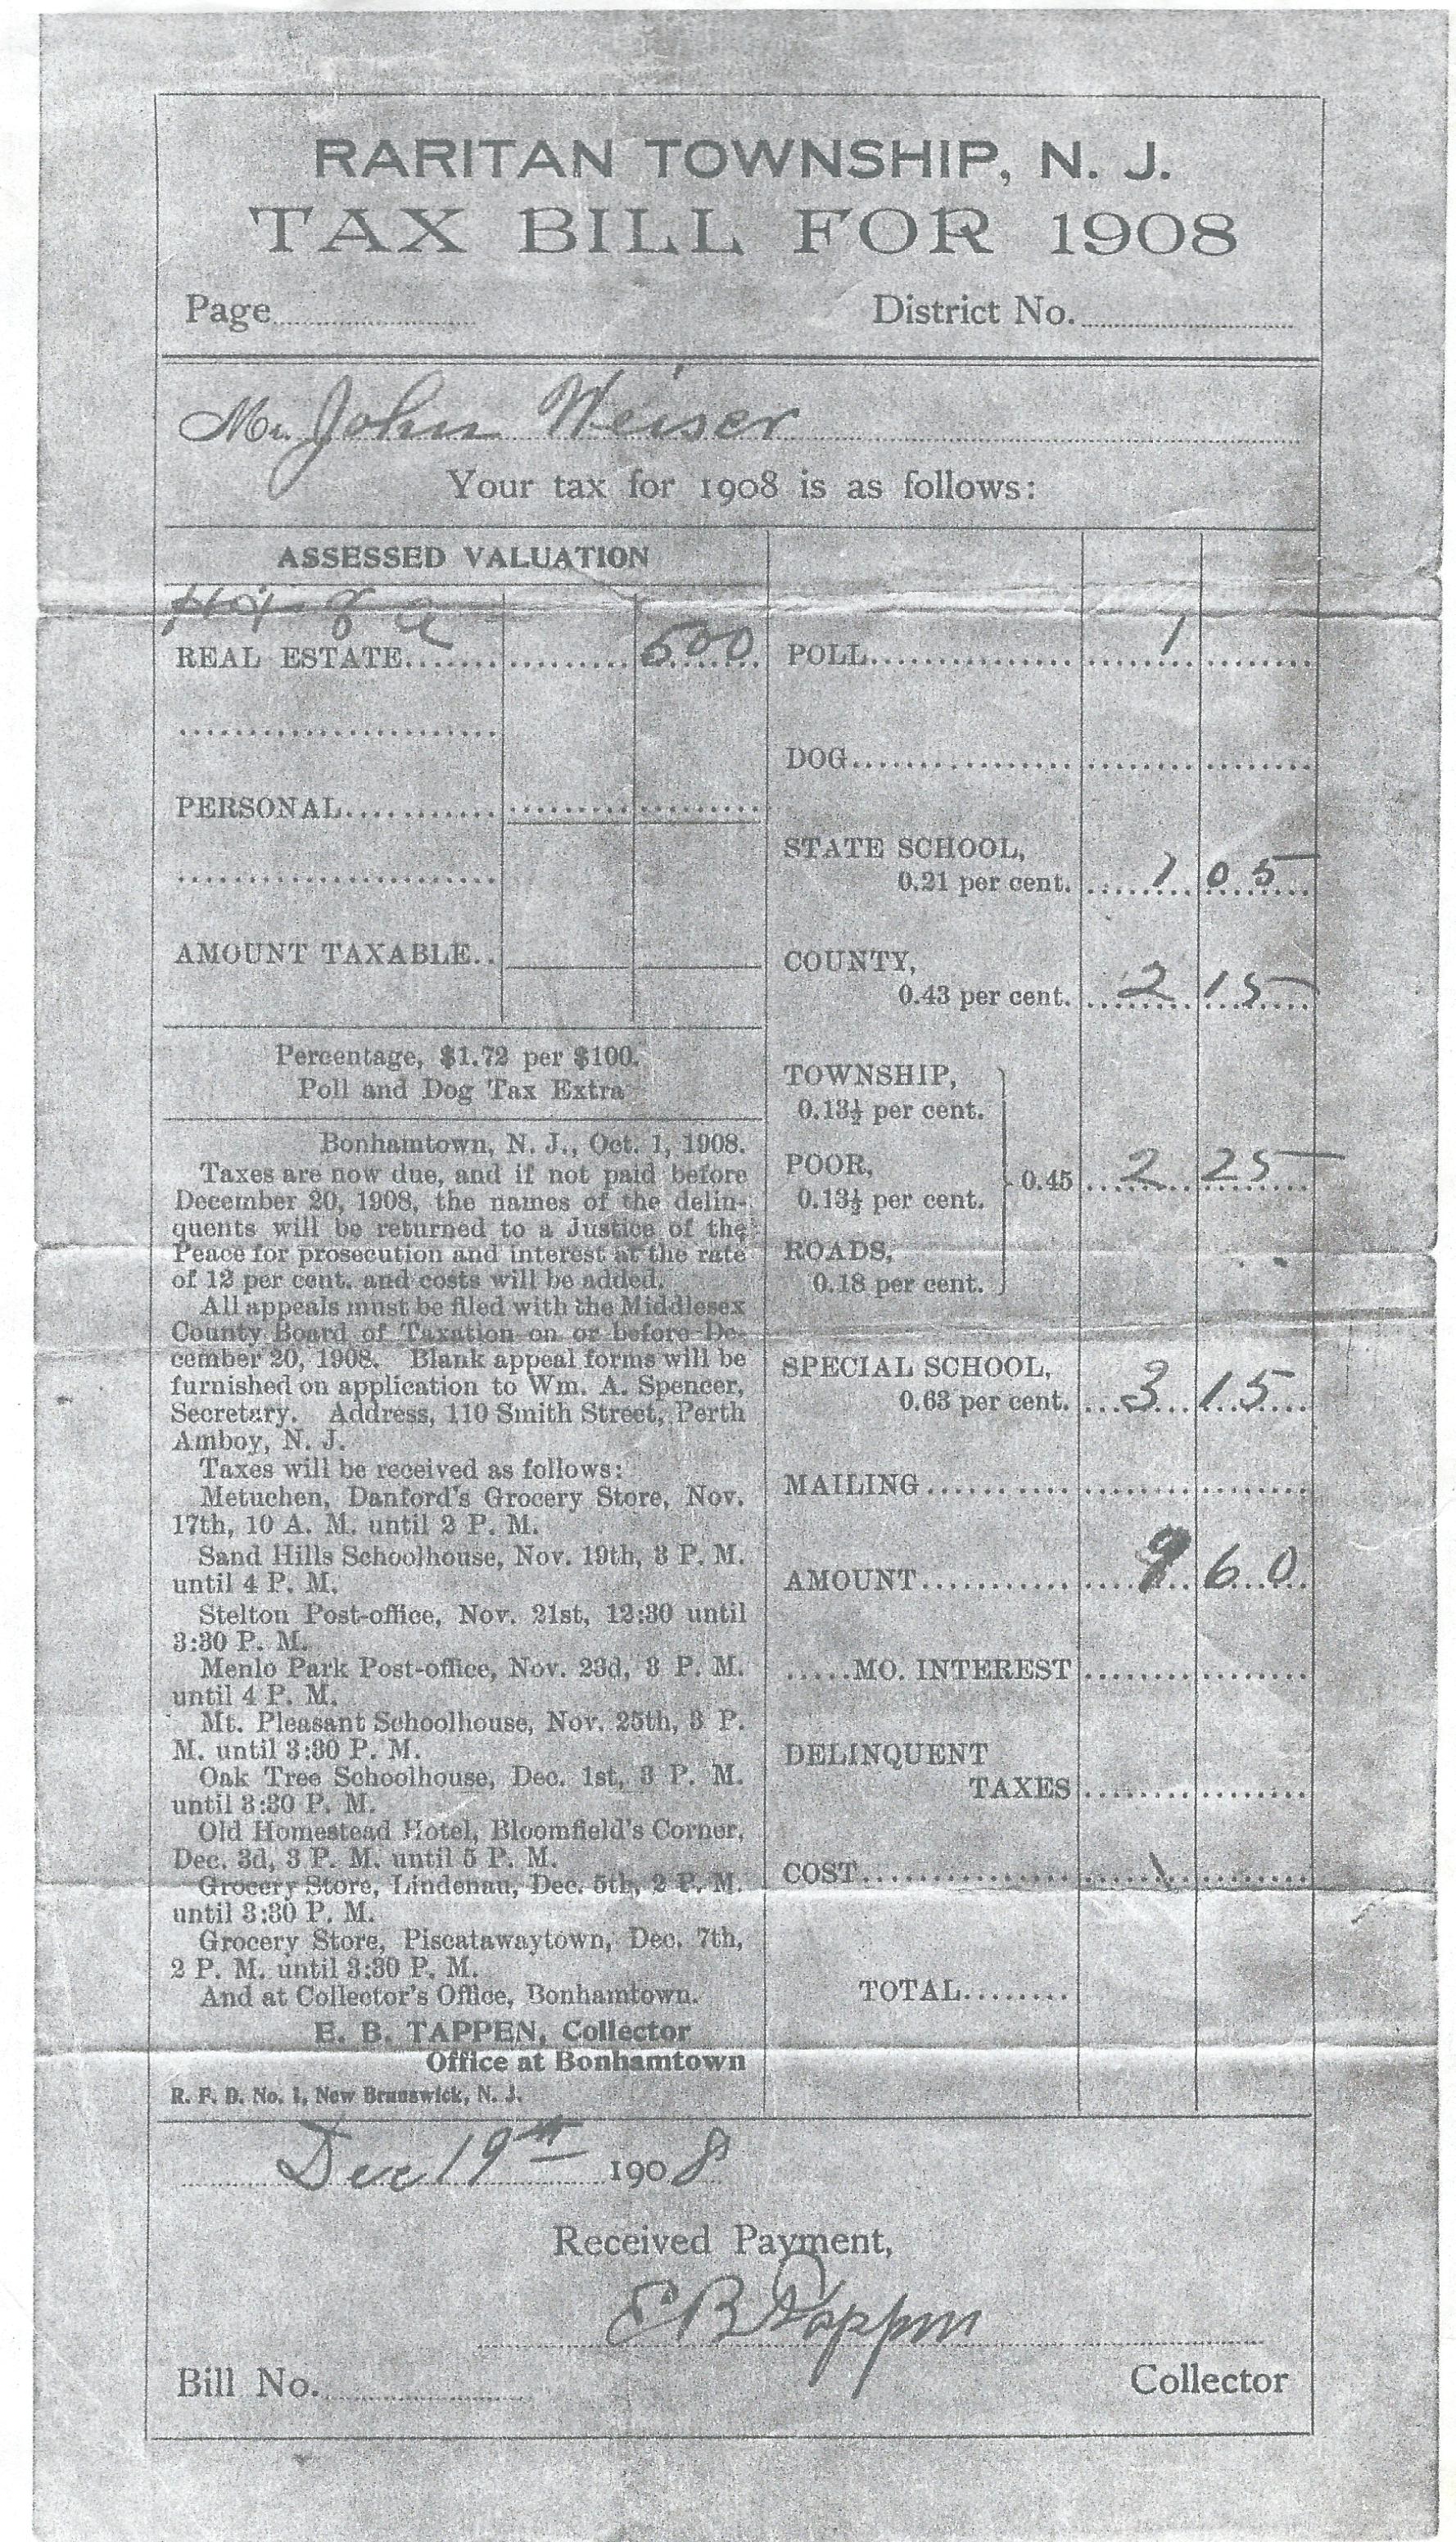 RARITAN TOWNSHIP, N. J.
TAX BILL FOR 1908
Page
District No.
Mr. John Weiser
Your tax for 1908 is as follows:
ASSESSED VALUATION
REAL ESTATE 500
PERSONAL
AMOUNT TAXABLE
Percentage, $1.72 per $100.
Poll and Dog Tax Extra
Bonhamtown, N. J., Oct. 1, 1908.
Taxes are now due, and if not paid before
December 20, 1908, the names of the delin-
quents will be returned to a Justice of the
Peace for prosecution and interest at the rate
of 12 per cent. and costs will be added.
All appeals must be filed with the Middlesex
County Board of Taxation on or before De-
cember 20, 1908. Blank appeal forms will be
furnished on application to Wm. A. Spencer,
Secretary. Address, 110 Smith Street, Perth
Amboy, N. J.
Taxes will be received as follows:
Metuchen, Danford's Grocery Store, Nov.
17th, 10 A. M. until 2 P. M.
Sand Hills Schoolhouse, Nov. 19th, 3 P. M.
until 4 P. M.
Stelton Post-office, Nov. 21st, 12:30 until
3:30 P. M.
Menlo Park Post-office, Nov. 23d, 3 P. M.
until 4 P. M.
Mt. Pleasant Schoolhouse, Nov. 25th, 3 P.
M. until 3:30 P. M.
Oak Tree Schoolhouse, Dec. 1st, 3 P. M.
until 3:30 P. M.
Old Homestead Hotel, Bloomfield's Corner,
Dec. 3d, 3 P. M. until 5 P. M.
Grocery Store, Lindenau, Dec. 5th, 2 P. M.
until 3:30 P. M.
Grocery Store, Piscatawaytown, Dec. 7th,
2 P. M. until 3:30 P. M.
And at Collector's Office, Bonhamtown.
E. B. TAPPEN, Collector
Office at Bonhamtown
R. F. D. No. 1, New Brunswick, N. J.
POLL 1
DOG
STATE SCHOOL,
0.21 per cent. 1 05
COUNTY,
0.43 per cent. 2 15
TOWNSHIP,
0.13½ per cent.
POOR,
0.13½ per cent.
0.45 2 25
ROADS,
0.18 per cent.
SPECIAL SCHOOL,
0.63 per cent. 3 15
MAILING
AMOUNT 9 60
MO. INTEREST
DELINQUENT
TAXES
COST
TOTAL
Dec 19th 1908
Received Payment,
E B Tappen
Bill No.
Collector